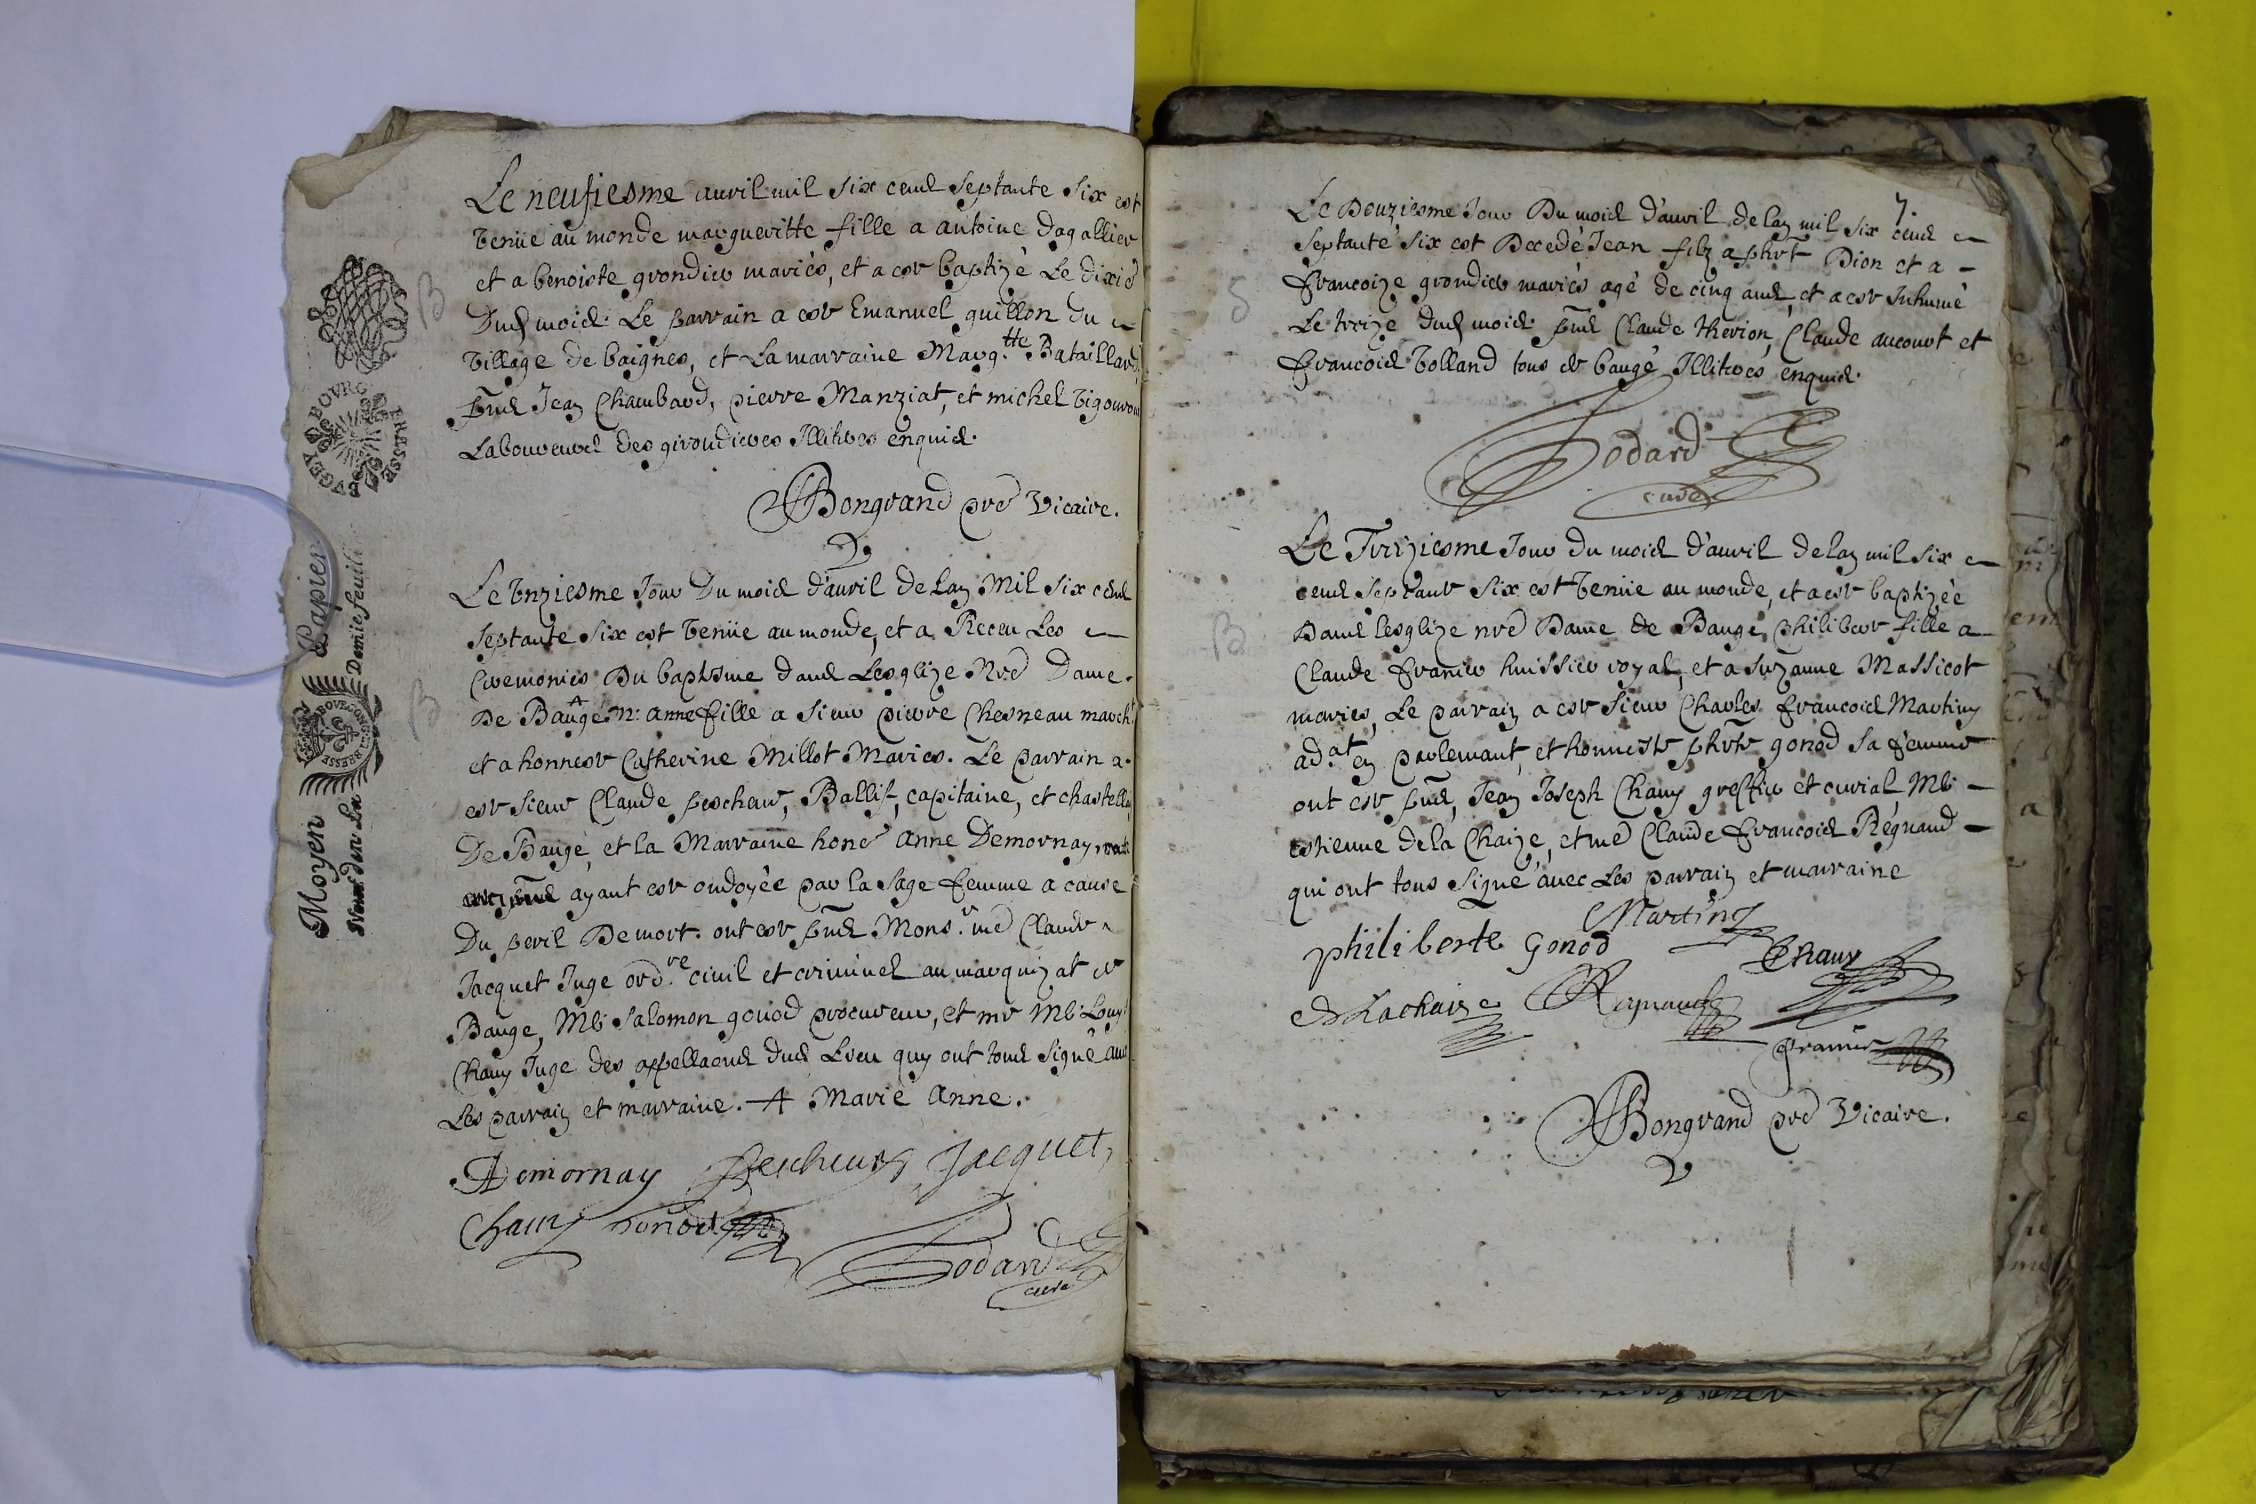 Le neufiesme auril mil six cens septante six est
venüe au monde margueritte fille a antoine dagallier
et a benoiste grondier mariés, et a este baptizé Le dixie
Dud moid. Le parrain a este Emanuel guillon du
village de baignes, et La marraine Marg.tte Bataillard
pñs Jean Chambard, pierre Manziat, et michel vigourou
Laboureurs des girondieres Illitres enquis.
Bongrand pre Vicaire.
Le vnziesme Jour Du mois d'auril de Lan Mil six cens
septante six est venüe au monde, et a Receu Les
Ceremonies Du baptesme dans Lesglize Nre Dame
De Baugé n: anne fille a sieur pierre Chesneau march
et a honneste Catherine Millot Mariés. Le parrain a
este sieur Claude pescheur, Ballif, capitaine, et chastellain
De Baugé, et la Marraine hone Anne Demornay,
ayant este ondoyée par la sage femme a cause
Du peril De mort. ont este pñs Mons.r me Claude
Jacquet Juge ord.re civil et criminel au marquizat de
Bauge, Me Salomon gonod procureur, et Me Louys
Chauy Juge des appellaons dud Lieu quy ont tous signé auec
Les parrain et marraine. A Marie Anne.
Demornay Pescheurs Jacquet
Chauy Gonod
Godard
curé
Moyen Papier
Demie feuille
BOVRG BRESSE BVGEY
7.
Le Douziesme Jour Du mois d'auril de lan mil six cens
septante six est Decedé Jean filz a phrt Dion et a
Francoize grondier mariés agé de cinq ans, et a este Inhumé
Le treize dud mois. pñs Claude therion, Claude aucourt et
francois volland tous de baugé Illitres enquis.
Godard
curé
Le Treiziesme Jour du mois d'auril de lan mil six
cens septante six est venüe au monde, et a este baptizée
Dans lesglize nre Dame de Baugé, philiberte fille a
Claude franier huissier royal, et a Suzanne Massicot
mariés, Le parrain a este sieur Charles francois Martiny
ad.at en parlement, et honneste phrte gonod sa femme
ont este pñs, Jean Joseph Chauy greffier et curial Me
estienne de la Chaize, et me Claude francois Régnaud
qui ont tous signé auec Les parrain et marraine
philiberte Gonod Martiny
Chauy
E Delachaize Regnaud
franier
Bongrand pre Vicaire.